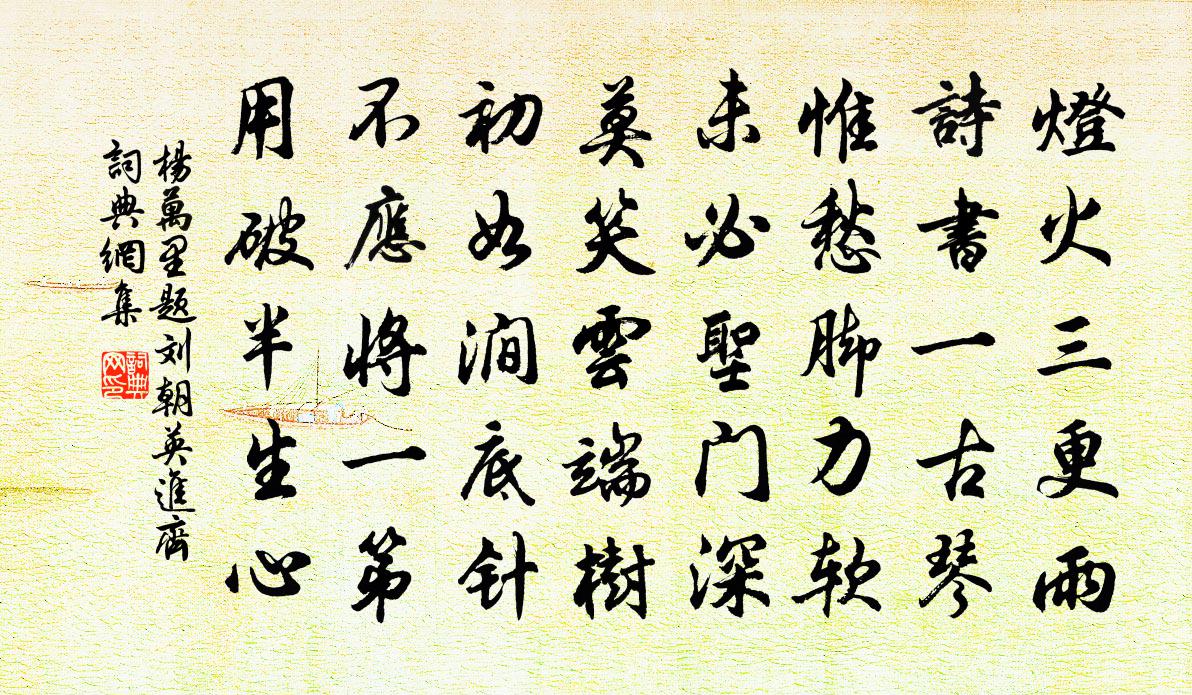 燈火三更雨
詩書一古琴
惟愁脚力软
未必聖门深
莫笑雲端樹
初如澗底针
不應將一第
用破半生心
楊萬里题刘朝英進齋
詞典網集
詞典网印